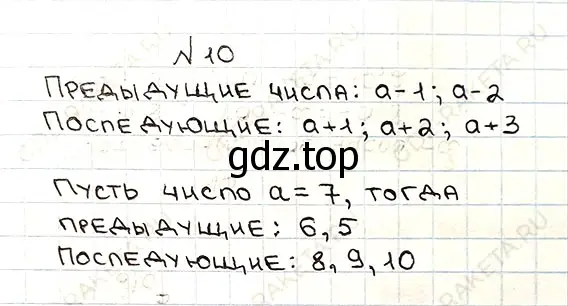 №10
Предыдущие числа: a-1; a-2
Последующие: a+1; a+2; a+3
gdz.top
Пусть число a=7, тогда
предыдущие: 6, 5
Последующие: 8, 9, 10